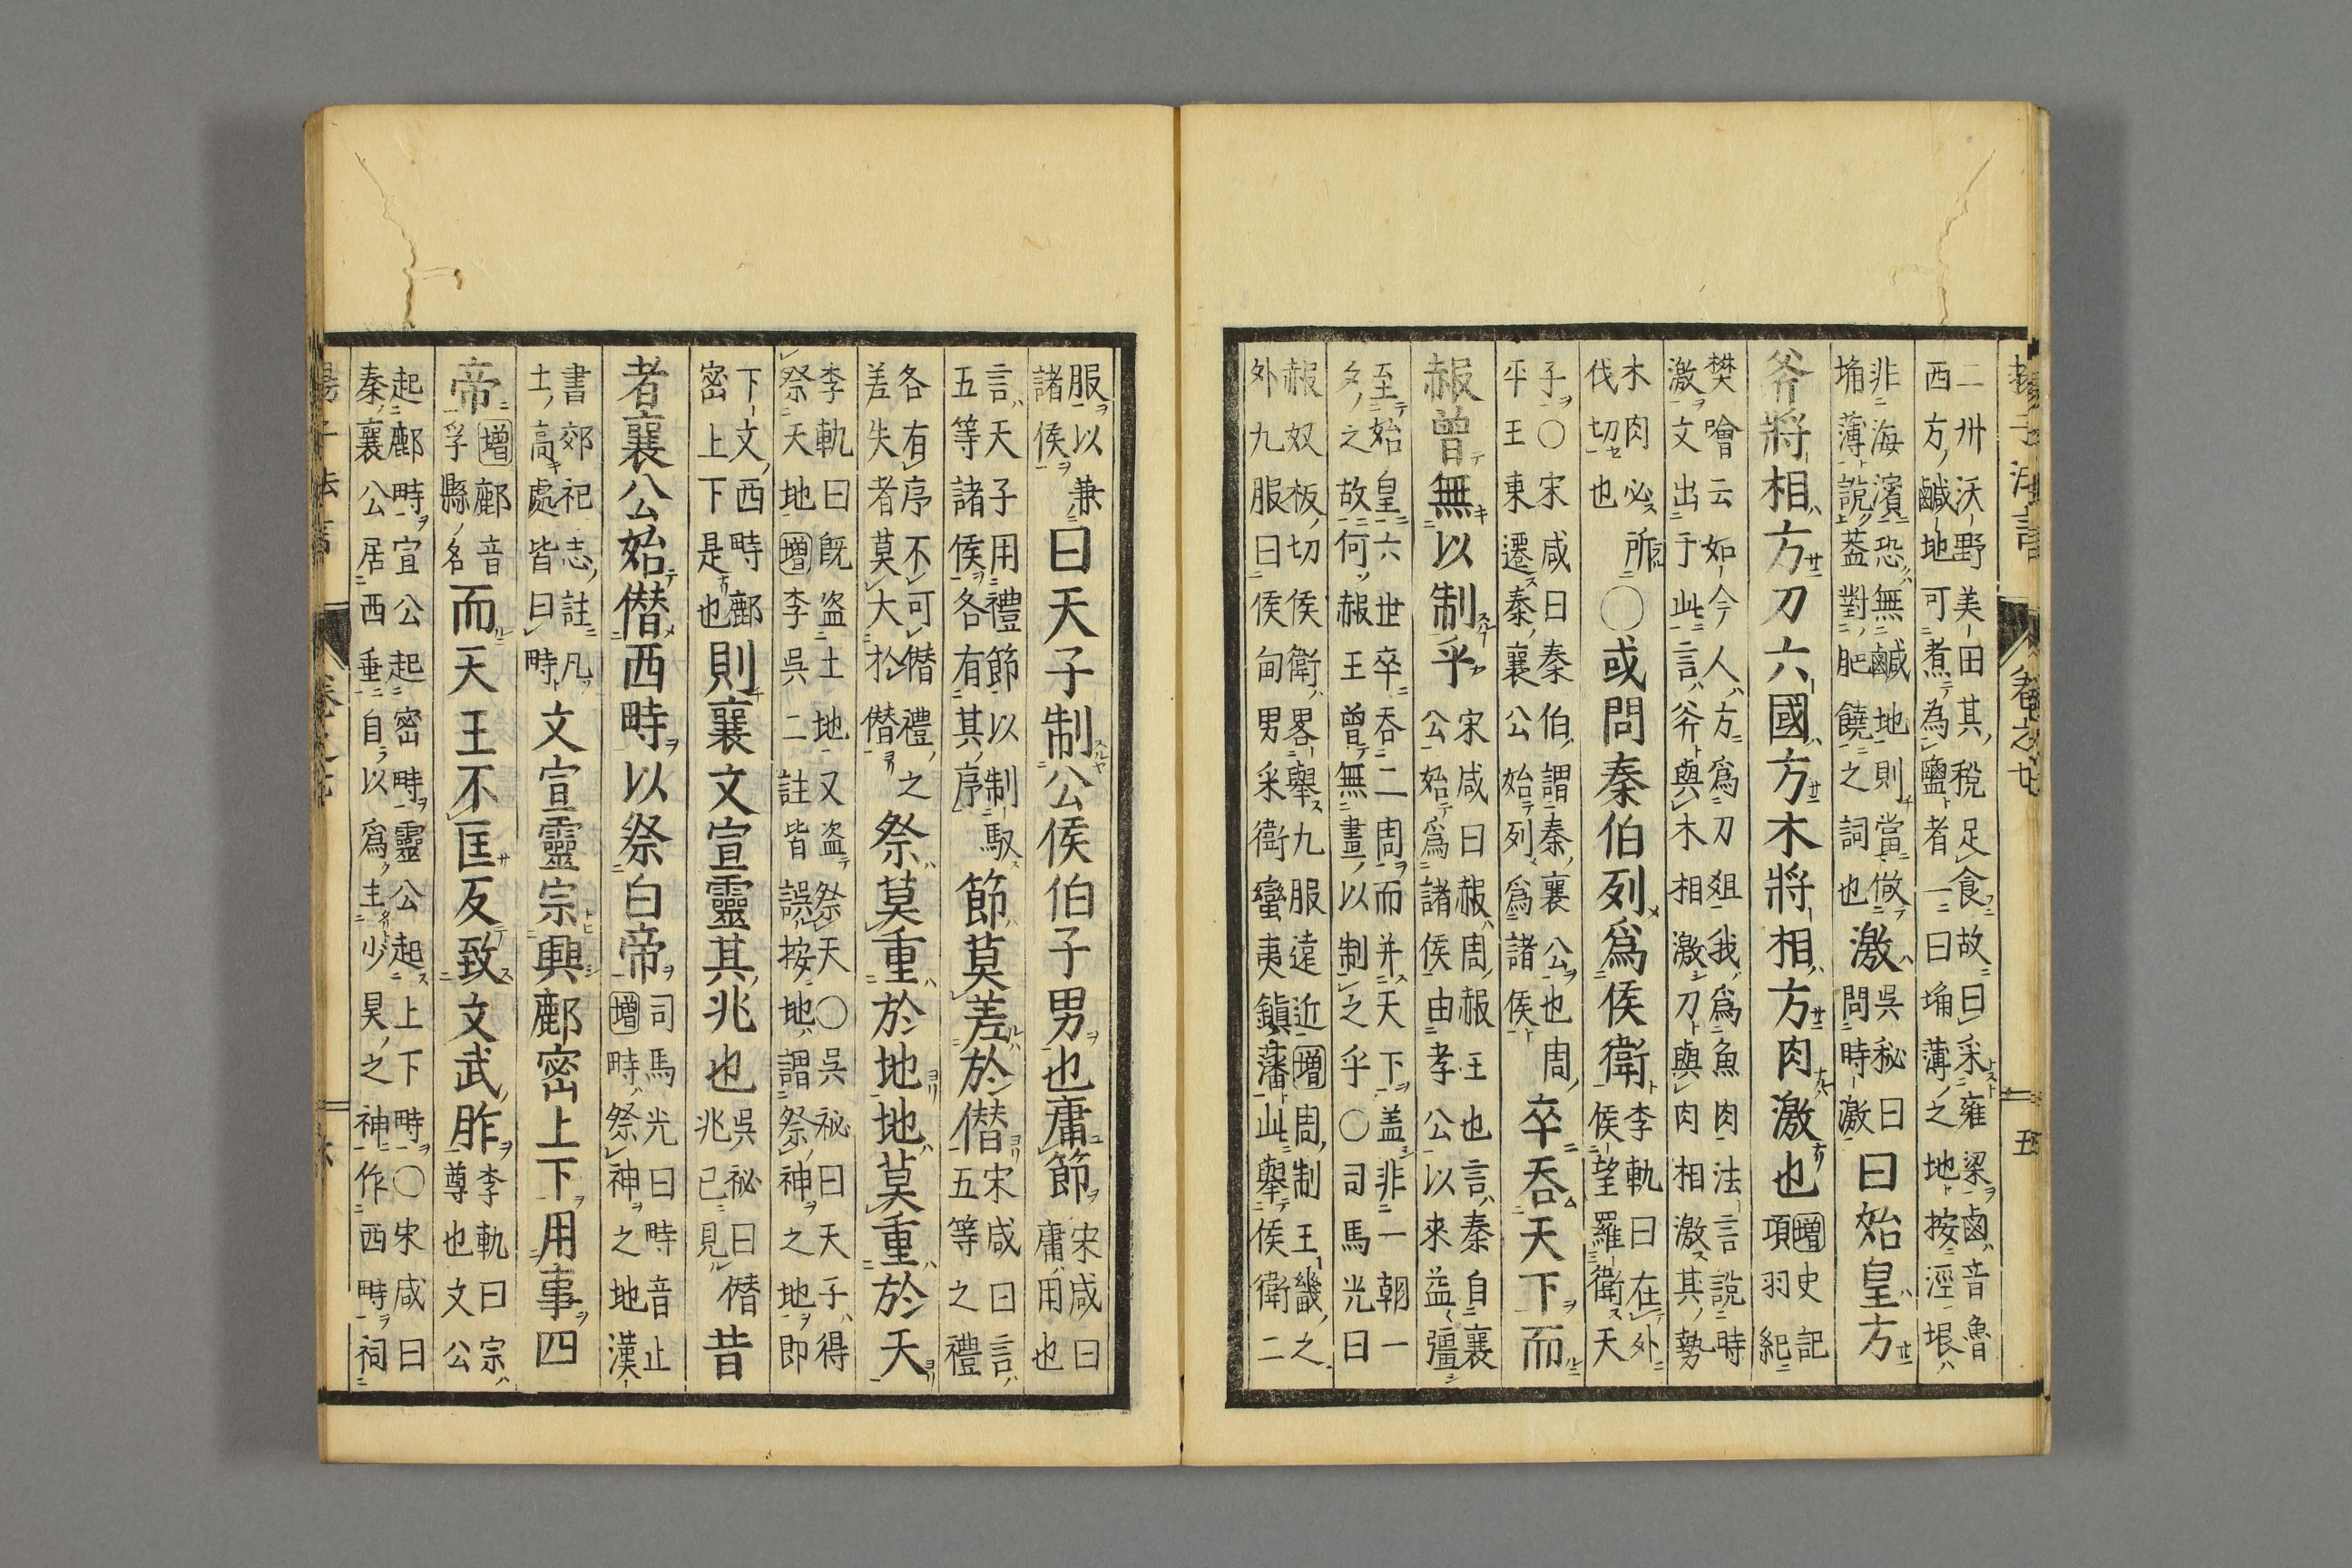 二州沃野美田其稅足食故曰采雍梁鹵音魯
西方鹹地可煮為鹽者一曰埆薄之地按涇垠
非海濱恐無鹹地則當倣
埆薄說蓋對肥饒之詞也
激
吳秘曰
問時激
曰始皇方
斧將相方刀六國方木將相方肉激也
增史記
項羽紀
樊噲云如今人方爲刀爼我爲魚肉法言說時
激文出于此言斧與木相激刀與肉相激其勢
木肉必所
伐切也
○或問秦伯列爲侯衛
李軌曰在外
侯望羅衛天
子○宋咸曰秦伯謂秦襄公也周
平王東遷秦襄公始列爲諸侯
卒吞天下而
赧曾無以制乎
宋咸曰赧周赧王也言秦自襄
公始爲諸侯由孝公以來益彊
至始皇六世卒吞二周而并天下蓋非一朝一
夕之故何赧王曾無畫以制之乎○司馬光曰
赧奴板切侯衛畧舉九服遠近增周制王畿之
外九服曰侯甸男采衛蠻夷鎮藩此舉侯衛二
服以兼
諸侯
曰天子制公侯伯子男也庸節
宋咸曰
庸用也
言天子用禮節以制馭
五等諸侯各有其序
節莫差於僭
宋咸曰言
五等之禮
各有序不可僭禮之
差失者莫大於僭
祭莫重於地地莫重於天
李軌曰既盗土地又盗祭天○吳祕曰天子得
祭天地增李吳二註皆誤按地謂祭神之地即
下文西畤鄜
密上下是也
則襄文宣靈其兆也
吳祕曰僭
兆已見
昔
者襄公始僭西畤以祭白帝
司馬光曰畤音止
增畤祭神之地漢
書郊祀志註凡
土高處皆曰畤
文宣靈宗興鄜密上下用事四
帝
增鄜音
孚縣名
而天王不匡反致文武胙
李軌曰宗
尊也文公
起鄜畤宣公起密畤靈公起上下畤○宋咸曰
秦襄公居西垂自以爲主少昊之神作西畤祠